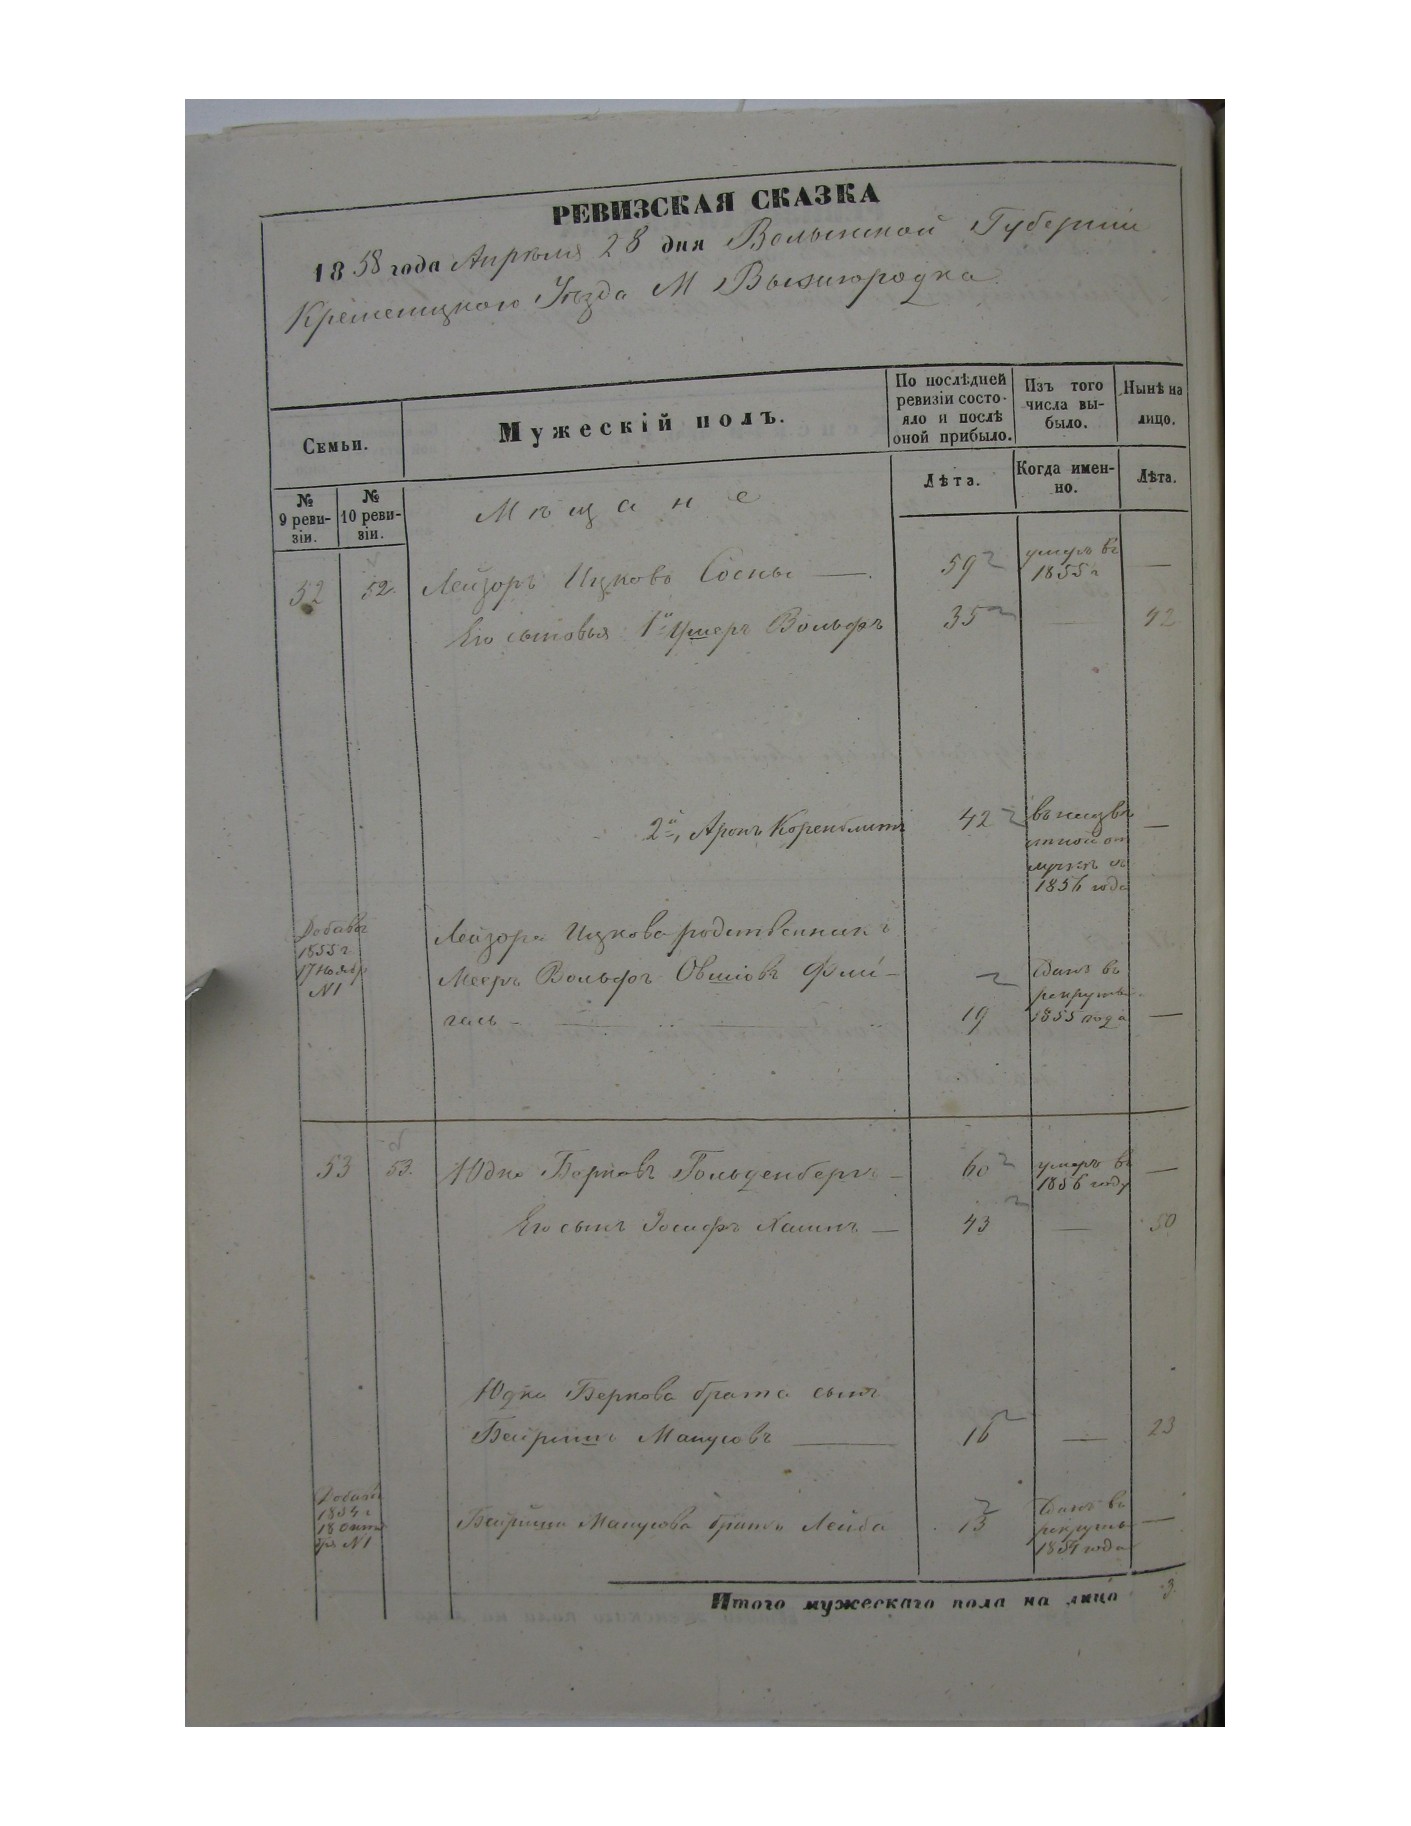 РЕВИЗСКАЯ СКАЗКА
1858 года Апрѣля 28 дня Волынской Губерніи
Кременицкого Уѣзда М Вышгородка
Семьи.
Мужескій полъ.
По послѣдней ревизіи состояло и послѣ оной прибыло.
Изъ того числа выбыло.
Нынѣ на лицо.
№ 9 ревизіи.
№ 10 ревизіи.
Лѣта.
Когда именно.
Лѣта.
Мѣщане
52 52. Лейзоръ Ицковъ Сосны — 59 умеръ въ 1855 г —
Его сыновья 1й Вольфъ 35 — 42
2й, Аронъ Коренблитъ 42 въ неизвѣстной отлучкѣ съ 1856 года —
Добавъ 1855 г 17 Ноябр N1
Лейзора Ицкова родственникъ
Мееръ Вольфъ Овшіовъ Фли-
гель — 19 Сданъ въ рекруты 1855 года —
53 53. Юдко Берковъ Гольденбергъ — 60 умеръ въ 1856 году —
Его сынъ Іосифъ Хаимъ — 43 — 50
Юдка Беркова брата сынъ
Бейришъ Манусовъ — 16 — 23
Добавъ 1854 г 18 Октября N1
Бейриша Манусова братъ Лейба 13 Сданъ въ рекруты 1854 года —
Итого мужескаго пола на лицо 3.